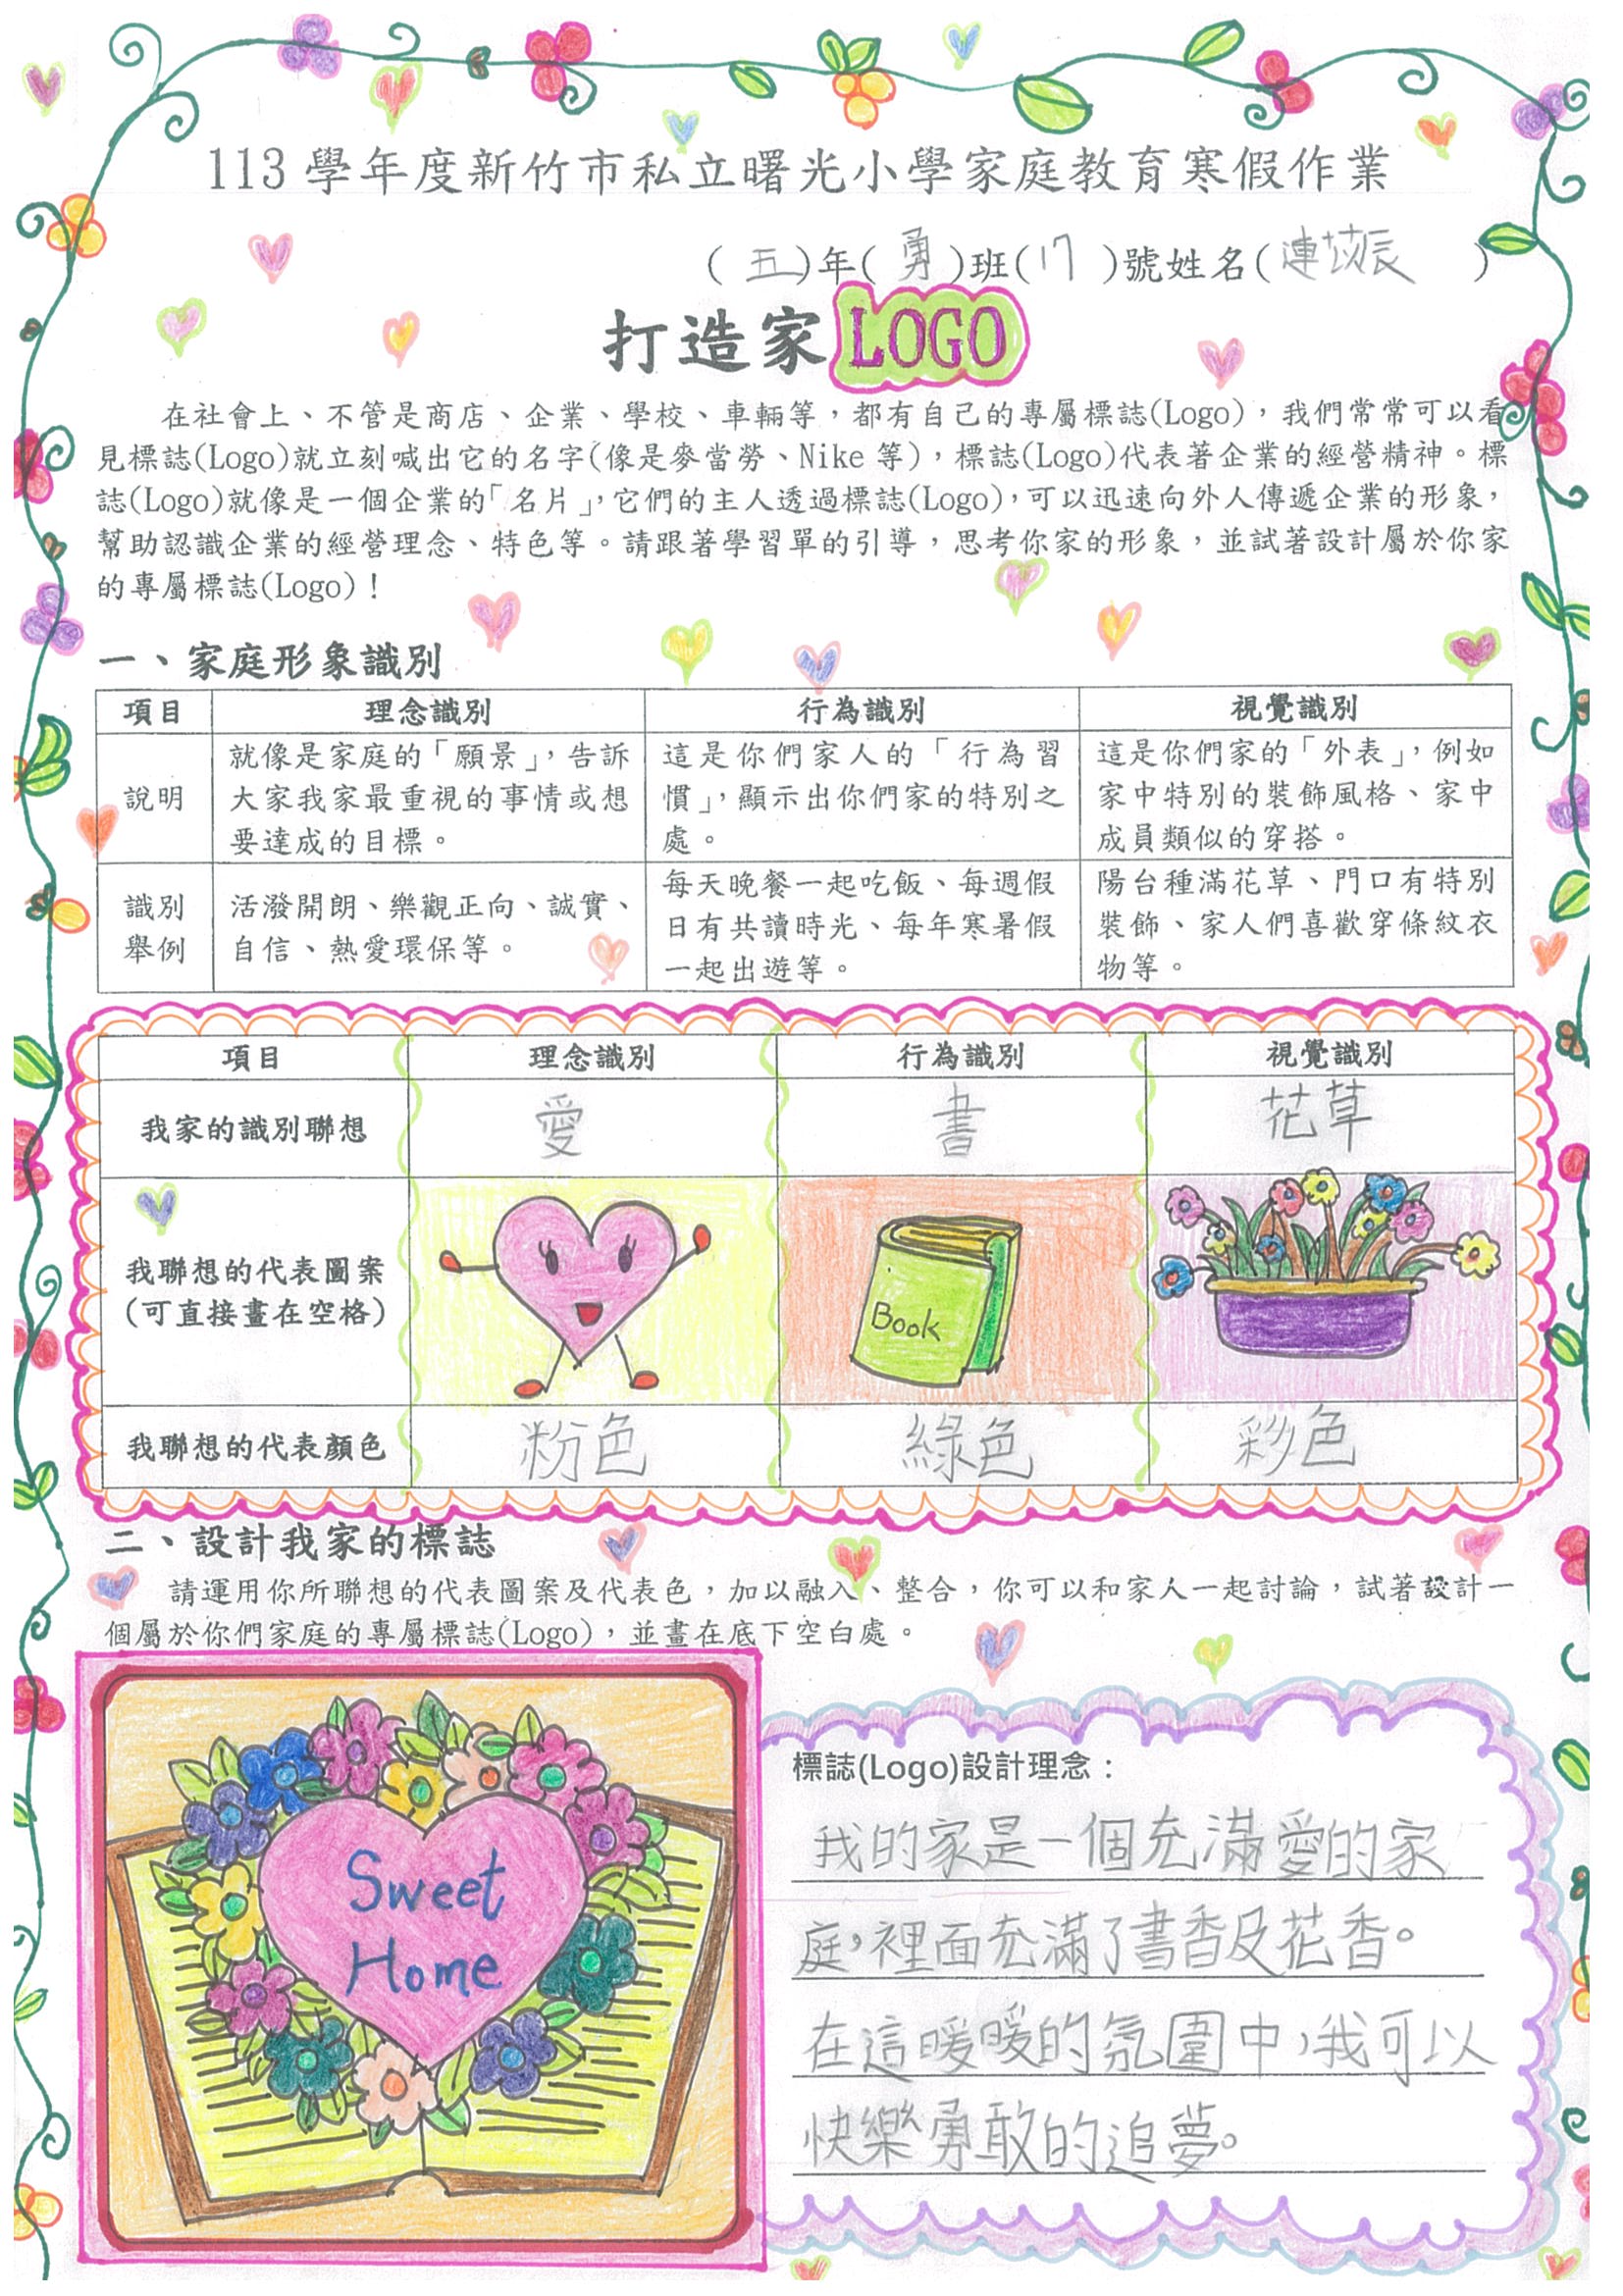 113 學年度新竹市私立曙光小學家庭教育寒假作業
( 五 )年( 勇 )班( 17 )號姓名( 連 辰 )
打造家LOGO
在社會上、不管是商店、企業、學校、車輛等，都有自己的專屬標誌(Logo)，我們常常可以看
見標誌(Logo)就立刻喊出它的名字(像是麥當勞、Nike 等)，標誌(Logo)代表著企業的經營精神。標
誌(Logo)就像是一個企業的「名片」，它們的主人透過標誌(Logo)，可以迅速向外人傳遞企業的形象，
幫助認識企業的經營理念、特色等。請跟著學習單的引導，思考你家的形象，並試著設計屬於你家
的專屬標誌(Logo)！
一、家庭形象識別
項目 理念識別 行為識別 視覺識別
說明
就像是家庭的「願景」，告訴
大家我家最重視的事情或想
要達成的目標。
這是你們家人的「行為習
慣」，顯示出你們家的特別之
處。
這是你們家的「外表」，例如
家中特別的裝飾風格、家中
成員類似的穿搭。
識別
舉例
活潑開朗、樂觀正向、誠實、
自信、熱愛環保等。
每天晚餐一起吃飯、每週假
日有共讀時光、每年寒暑假
一起出遊等。
陽台種滿花草、門口有特別
裝飾、家人們喜歡穿條紋衣
物等。
項目 理念識別 行為識別 視覺識別
我家的識別聯想 愛 書 花草
我聯想的代表圖案
(可直接畫在空格)
Book
我聯想的代表顏色 粉色 綠色 彩色
二、設計我家的標誌
請運用你所聯想的代表圖案及代表色，加以融入、整合，你可以和家人一起討論，試著設計一
個屬於你們家庭的專屬標誌(Logo)，並畫在底下空白處。
Sweet
Home
標誌(Logo)設計理念：
我的家是一個充滿愛的家
庭，裡面充滿了書香及花香。
在這暖暖的氛圍中，我可以
快樂勇敢的追夢。